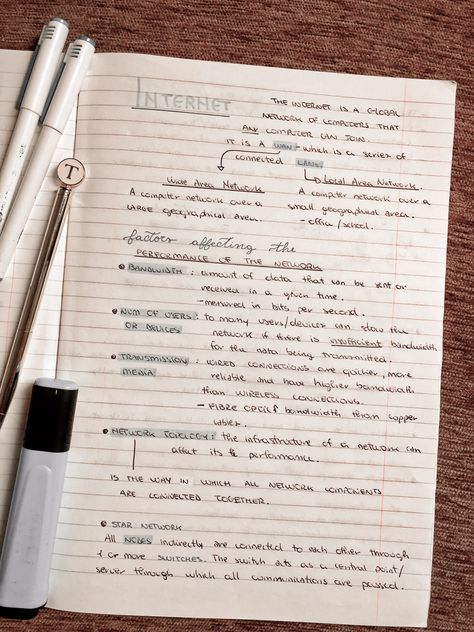 INTERNET
THE INTERNET IS A GLOBAL
NETWORK OF COMPUTERS THAT
ANY COMPUTER CAN JOIN.
IT IS A WAN - which is a series of
connected LANs.
Wide Area Network
A computer network over a
LARGE geographical area.
Local Area Network.
A computer network over a
small geographical area.
- office / school.
factors affecting the
PERFORMANCE OF THE NETWORK
BANDWIDTH : amount of data that can be sent or
received in a given time.
- measured in bits per second.
NUM OF USERS : to many users/devices can slow the
OR DEVICES network if there is insufficient bandwidth
for the data being transmitted.
TRANSMISSION : WIRED CONNECTIONS are quicker, more
MEDIA reliable and have higher bandwidth
than WIRELESS CONNECTIONS.
- FIBRE OPTIC↑ bandwidth than copper
cables.
NETWORK TOPOLOGY : the infrastructure of a network can
affect its performance.
IS THE WAY IN WHICH ALL NETWORK COMPONENTS
ARE CONNECTED TOGETHER.
STAR NETWORK
All NODES indirectly are connected to each other through
1 or more SWITCHES. The switch acts as a central point/
server through which all communications are passed.
T